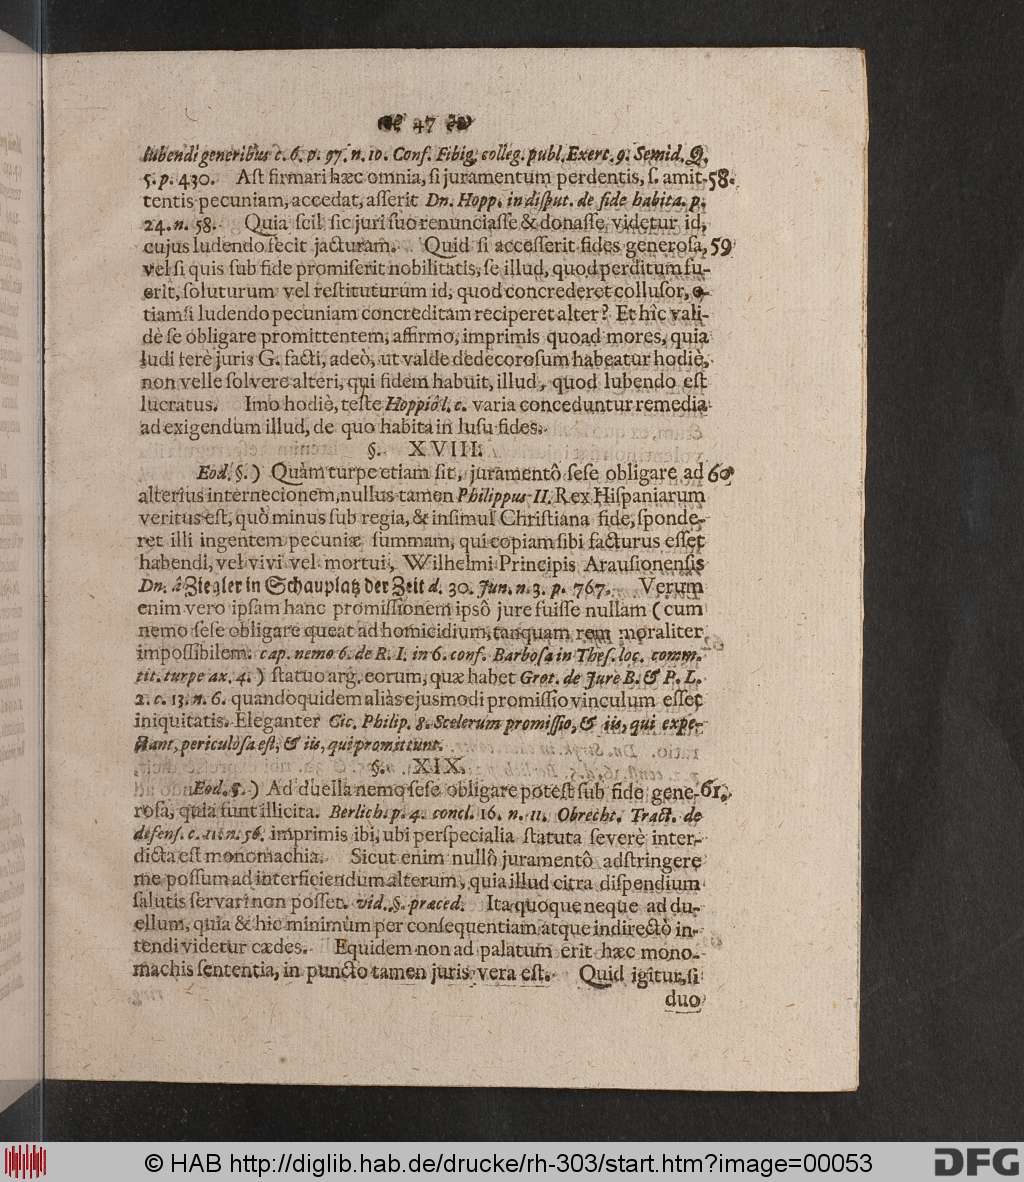 47
lubendi generibus c. 6. p. 97. n. 10. Conf. Fibig. colleg. publ. Exerc. 9. Semid. Q.
5. p. 430. Aſt firmari hæc omnia, ſi juramentum perdentis, ſ. amit- 58.
tentis pecuniam, accedat, aſſerit Dn. Hopp. in diſput. de fide habita. p.
24. n. 58. Quia ſcil ſic juri ſuo renunciaſſe & donaſſe videtur id,
cujus ludendo fecit jacturam. Quid ſi acceſſerit fides generoſa, 59
vel ſi quis ſub fide promiſerit nobilitatis, ſe illud, quod perditum fu-
erit, ſoluturum vel reſtituturum id, quod concrederet colluſor, e-
tiamſi ludendo pecuniam concreditam reciperet alter? Et hîc vali-
dè ſe obligare promittentem, affirmo, imprimis quoad mores, quia
ludi ferè juris G. facti, adeò, ut valde dedecoroſum habeatur hodiè,
non velle ſolvere alteri, qui fidem habuit, illud, quod lubendo eſt
lucratus. Imo hodiè, teſte Hoppiô l. c. varia conceduntur remedia
ad exigendum illud, de quo habita in luſu fides.
§. XVIII.
Eod. §.) Quàm turpe etiam ſit, juramentô ſeſe obligare ad 60
alterius internecionem, nullus tamen Philippus II. Rex Hiſpaniarum
veritus eſt, quò minus ſub regia, & inſimul Chriſtiana fide, ſponde-
ret illi ingentem pecuniæ ſummam, qui copiam ſibi facturus eſſet
habendi, vel vivi vel mortui, Wilhelmi Principis Arauſionenſis
Dn. â Ziegler in Schauplatz der Zeit d. 30. Jun. n. 3. p. 767. Verum
enim vero ipſam hanc promiſſionem ipsô jure fuiſſe nullam (cum
nemo ſeſe obligare queat ad homicidium, tanquam rem moraliter
impoſſibilem. cap. nemo 6. de R. I. in 6. conf. Barboſa in Theſ. loc. comm.
tit. turpe ax. 4.) ſtatuo arg. eorum, quæ habet Grot. de Jure B. & P. L.
2. c. 13. n. 6. quandoquidem aliàs ejusmodi promiſſio vinculum eſſet
iniquitatis. Eleganter Cic. Philip. 8. Scelerum promiſſio, & iis, qui expe-
ctant, periculoſa eſt, & iis, qui promittunt.
§. XIX.
Eod. §.) Ad duella nemo ſeſe obligare poteſt ſub fide gene- 61.
roſa, quia ſunt illicita. Berlich. p. 4. concl. 16. n. 11. Obrecht. Tract. de
defenſ. c. 11. n. 56. imprimis ibi, ubi per ſpecialia ſtatuta ſeverè inter-
dicta eſt monomachia. Sicut enim nullô juramentô adſtringere
me poſſum ad interficiendum alterum, quia illud citra diſpendium
ſalutis ſervari non poſſet. vid. §. præced. Ita quoque neque ad du-
ellum, quia & hic minimùm per conſequentiam atque indirectò in-
tendi videtur cædes. Equidem non ad palatum erit hæc mono-
machis ſententia, in puncto tamen juris vera eſt. Quid igitur, ſi
duo
© HAB http://diglib.hab.de/drucke/rh-303/start.htm?image=00053
DFG